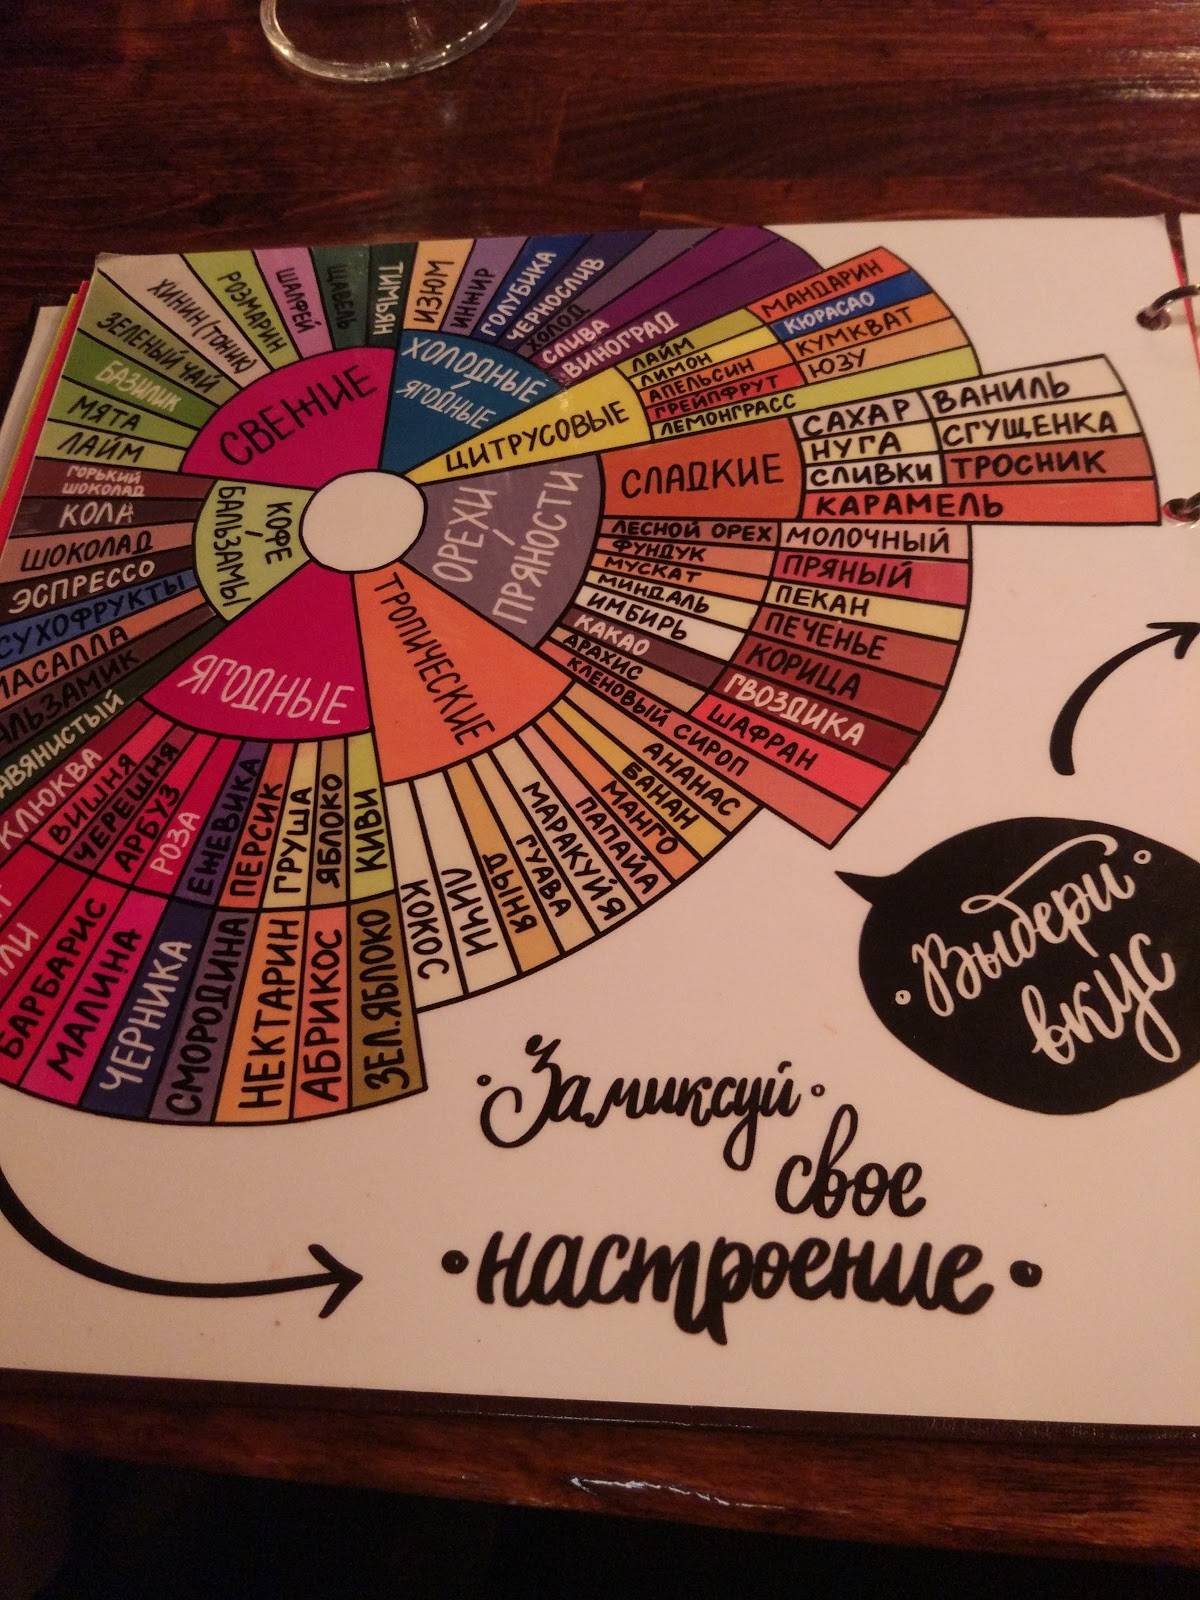 СВЕЖИЕ
ЛАЙМ
МЯТА
БАЗИЛИК
ЗЕЛЕНЫЙ ЧАЙ
ХИНИН (ТОНИК)
РОЗМАРИН
ШАЛФЕЙ
ЩАВЕЛЬ
ТИМЬЯН
ХОЛОДНЫЕ
/
ЯГОДНЫЕ
ИЗЮМ
ИНЖИР
ГОЛУБИКА
ЧЕРНОСЛИВ
ХОЛОД
СЛИВА
ВИНОГРАД
ЦИТРУСОВЫЕ
ЛАЙМ
ЛИМОН
АПЕЛЬСИН
ГРЕЙПФРУТ
ЛЕМОНГРАСС
МАНДАРИН
КЮРАСАО
КУМКВАТ
ЮЗУ
СЛАДКИЕ
САХАР
НУГА
СЛИВКИ
КАРАМЕЛЬ
ВАНИЛЬ
СГУЩЕНКА
ТРОСНИК
ОРЕХИ
/
ПРЯНОСТИ
ЛЕСНОЙ ОРЕХ
ФУНДУК
МУСКАТ
МИНДАЛЬ
ИМБИРЬ
КАКАО
АРАХИС
КЛЕНОВЫЙ СИРОП
МОЛОЧНЫЙ
ПРЯНЫЙ
ПЕКАН
ПЕЧЕНЬЕ
КОРИЦА
ГВОЗДИКА
ШАФРАН
ТРОПИЧЕСКИЕ
АНАНАС
БАНАН
МАНГО
ПАПАЙЯ
МАРАКУЙЯ
ГУАВА
ДЫНЯ
ЛИЧИ
КОКОС
ЯГОДНЫЕ
КИВИ
ЯБЛОКО
ГРУША
ПЕРСИК
ЕЖЕВИКА
РОЗА
АРБУЗ
ЧЕРЕШНЯ
ВИШНЯ
КЛЮКВА
ЗЕЛ. ЯБЛОКО
АБРИКОС
НЕКТАРИН
СМОРОДИНА
ЧЕРНИКА
МАЛИНА
БАРБАРИС
КОФЕ
/
БАЛЬЗАМЫ
СУХОФРУКТЫ
ЭСПРЕССО
ШОКОЛАД
КОЛА
ГОРЬКИЙ
ШОКОЛАД
Выбери
вкус
Замиксуй
свое
настроение